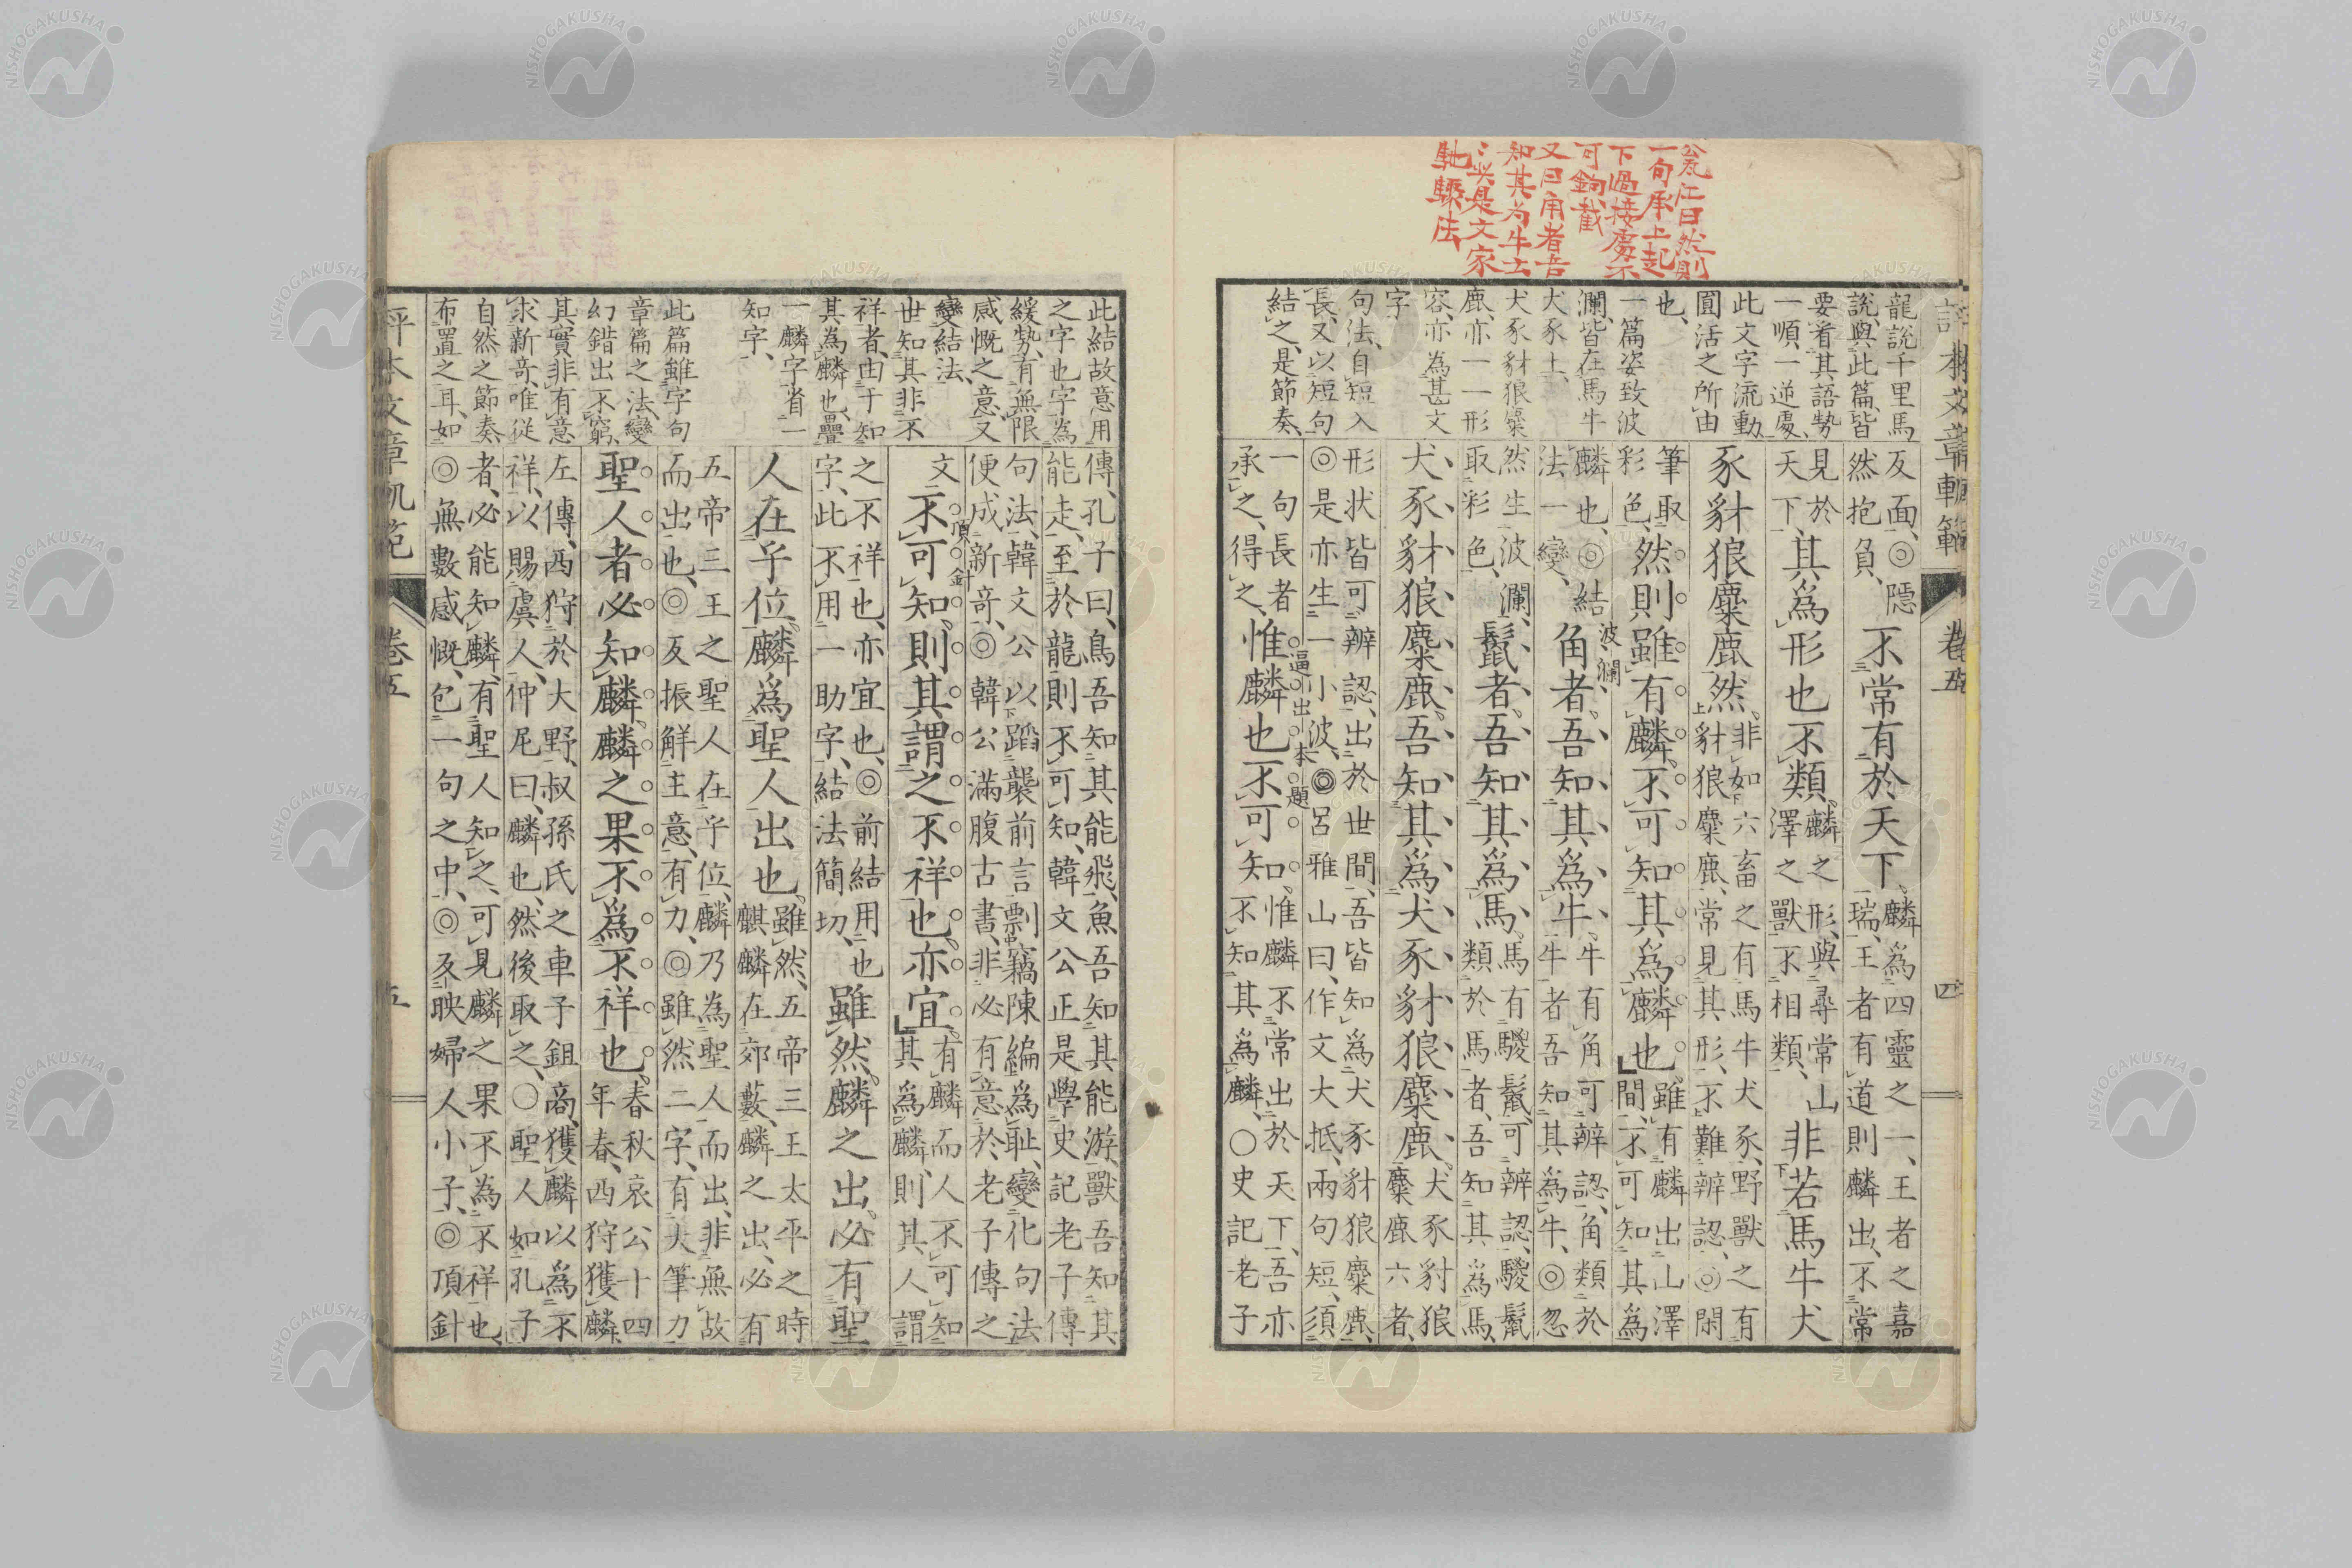 瓮江曰然則
一句承上起
下過接處不
可鉤截
又曰角者吾
知其为牛云
〻共是文家
馳驟法
龍說千里馬
說與此篇皆
要看其語勢
一順一逆處
此文字流動
圓活之所由
也
一篇姿致波
瀾皆在馬牛
犬豕上
犬豕豺狼麋
鹿亦一一形
容亦為甚文
字
句法自短入
長又以短句
結之是節奏
評林文章軌範 卷五 四
反面◎隱然抱負不常有於天下麟為四靈之一王者之嘉瑞王者有道則麟出不常
見於天下其為形也不類麟之形與尋常山澤之獸不相類非若馬牛犬
豕豺狼麋鹿然非如六畜之有馬牛犬豕野獸之有豺狼麋鹿常見其形不難辨認◎閑
筆取彩色然則雖有麟不可知其為麟也雖有麟出山澤間不可知其為
麟也◎結法一變波瀾角者吾知其為牛牛有角可辨認角類於牛者吾知其為牛◎忽
然生波瀾取彩色鬣者吾知其為馬馬有騣鬣可辨認騣鬣類於馬者吾知其為馬
犬豕豺狼麋鹿吾知其為犬豕豺狼麋鹿犬豕豺狼麋鹿六者
形状皆可辨認出於世間吾皆知為犬豕豺狼麋鹿◎是亦生一小波◎呂雅山曰作文大抵兩句短須
一句長者承之得之惟麟也不可知逼出本題惟麟不常出於天下吾亦不知其為麟○史記老子
此結故意用
之字也字為
緩勢有無限
感慨之意又
變結法
世知其非不
祥者由于知
其為麟也疊
一麟字省一
知字
此篇雖字句
章篇之法變
幻錯出不窮
其實非有意
求新奇唯從
自然之節奏
布置之耳如
傳孔子曰鳥吾知其能飛魚吾知其能游獸吾知其能走至於龍則不可知韓文公正是學史記老子傳
句法韓文公以蹈襲前言剽竊陳編為恥變化句法便成新奇◎韓公滿腹古書非必有意於老子傳之
文不可知頂針則其謂之不祥也亦宜有麟而人不可知其為麟則其人謂
之不祥也亦宜也◎前結用也字此不用一助字結法簡切雖然麟之出必有聖
人在乎位麟為聖人出也雖然五帝三王太平之時麒麟在郊藪麟之出必有
五帝三王之聖人在乎位麟乃為聖人而出非無故而出也◎反振鮮主意有力◎雖然二字有大筆力
聖人者必知麟麟之果不為不祥也春秋哀公十四年春西狩獲麟
左傳西狩於大野叔孫氏之車子鉏商獲麟以為不祥以賜虞人仲尼曰麟也然後取之○聖人如孔子
者必能知麟有聖人知之可見麟之果不為不祥也◎無數感慨包一句之中◎反映婦人小子◎頂針
評林文章軌範 卷五 五
NISHOGAKUSHA